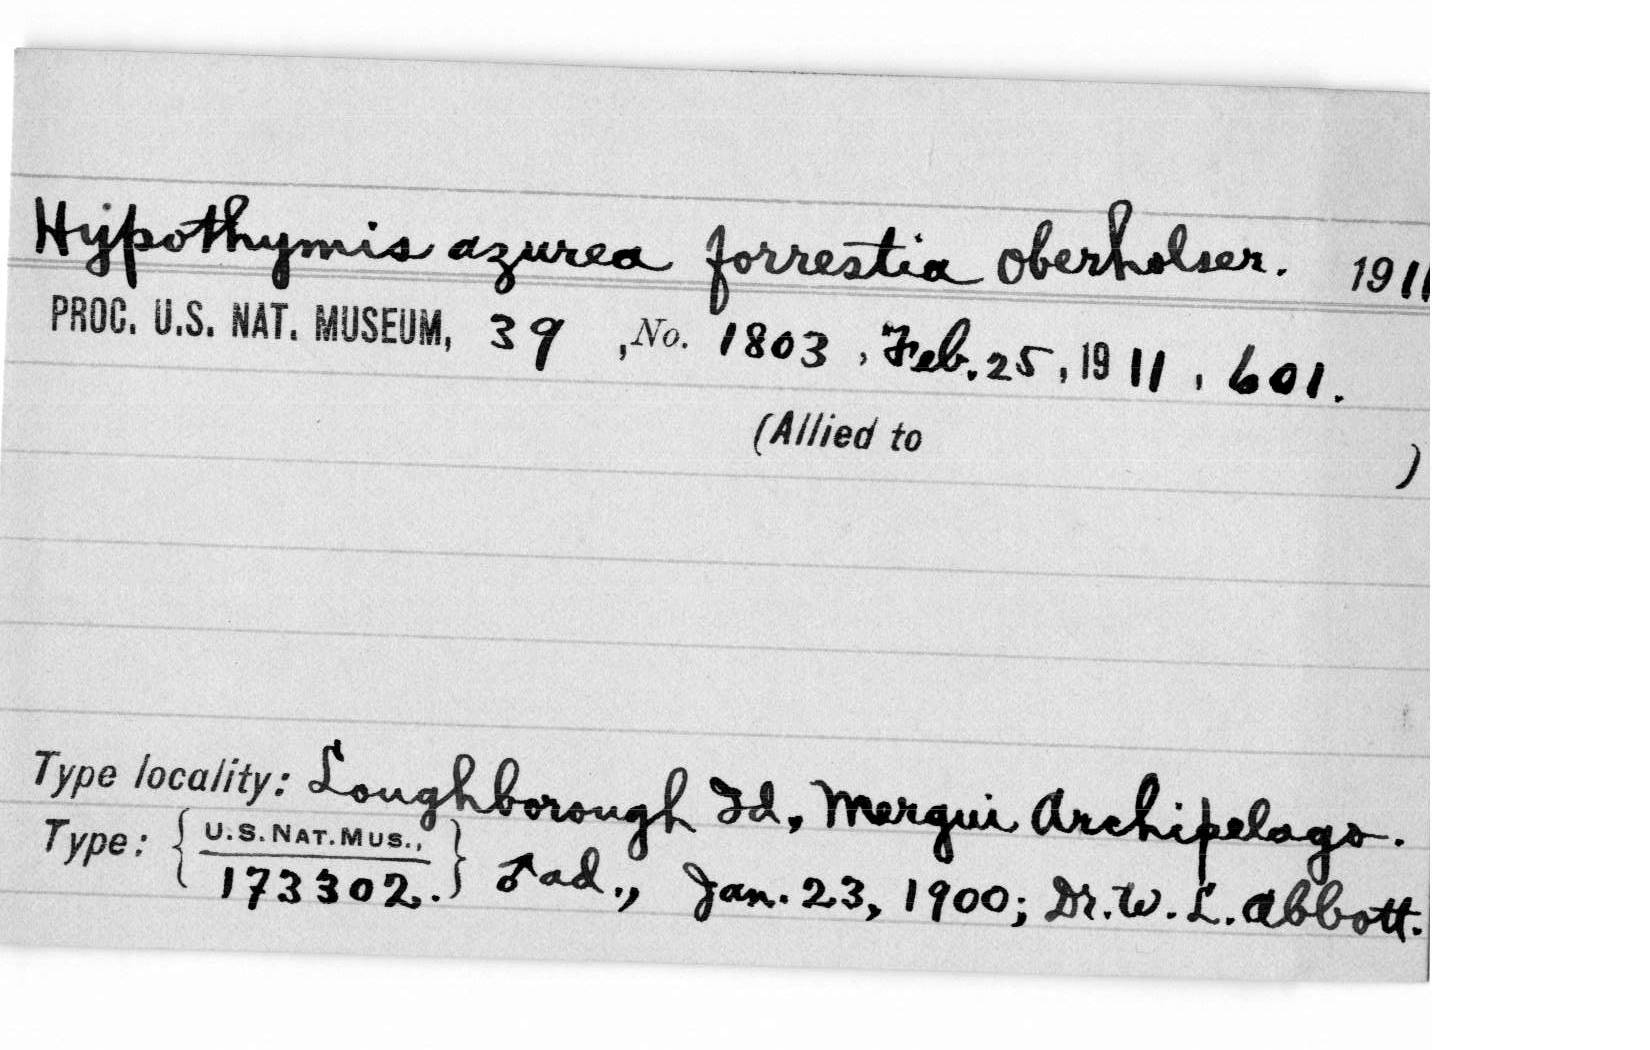 Hypothymis azurea forrestia Oberholser. 1911
PROC. U.S. NAT. MUSEUM, 39, No. 1803, Feb. 25, 1911, 601.
(Allied to )
Type locality: Loughborough Id., Mergui Archipelago.
Type: { U.S. NAT. MUS., 173302. } ♂ ad., Jan. 23, 1900; Dr. W. L. Abbott.